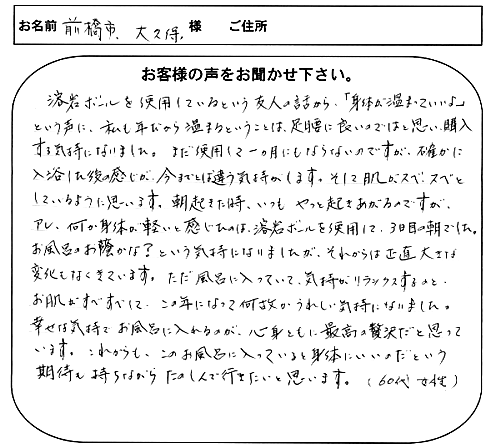 お名前 前橋市、大久保、様　ご住所
お客様の声をお聞かせ下さい。
溶岩ボールを使用しているという友人の話から、「身体が温まっていいよ」
という声に、私も耳だから温まるということは、足腰に良いのではと思い、購入
する気持になりました。まだ使用して一ヶ月にもならないのですが、確かに
入浴した後の感じが、今までとは違う気持がします。そして肌がスベスベと
しているように思います。朝起きた時、いつもやっと起きあがるのですが、
アレ、何か身体が軽いと感じたのは、溶岩ボールを使用して、3日目の朝でした。
お風呂のお蔭かな？という気持になりましたが、それからは正直大きな
変化もなくきています。ただ風呂に入っていて、気持がリラックスするのと、
お肌がすべすべして、この年になって何故かうれしい気持になりました。
幸せな気持でお風呂に入れるのが、心身ともに最高の贅沢だと思って
います。これからも、このお風呂に入っていると身体にいいのだという
期待も持ちながらたのしんで行きたいと思います。（60代 女性）